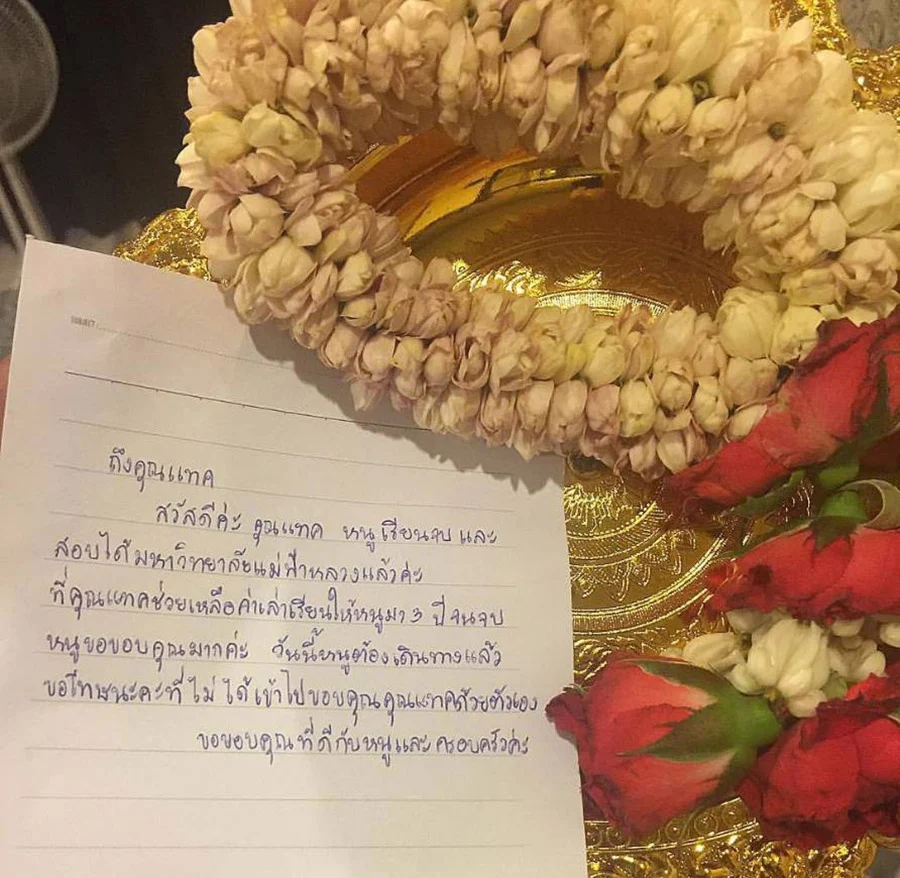 SUBJECT
ถึงคุณแทค
สวัสดีค่ะ คุณแทค หนูเรียนจบ และ
สอบได้มหาวิทยาลัยแม่ฟ้าหลวงแล้วค่ะ
ที่คุณแทคช่วยเหลือค่าเล่าเรียนให้หนูมา 3 ปีจนจบ
หนูขอขอบคุณมากค่ะ วันนี้หนูต้องเดินทางแล้ว
ขอโทษนะคะที่ไม่ได้เข้าไปขอบคุณคุณแทคด้วยตัวเอง
ขอขอบคุณที่ดีกับหนูและครอบครัวค่ะ